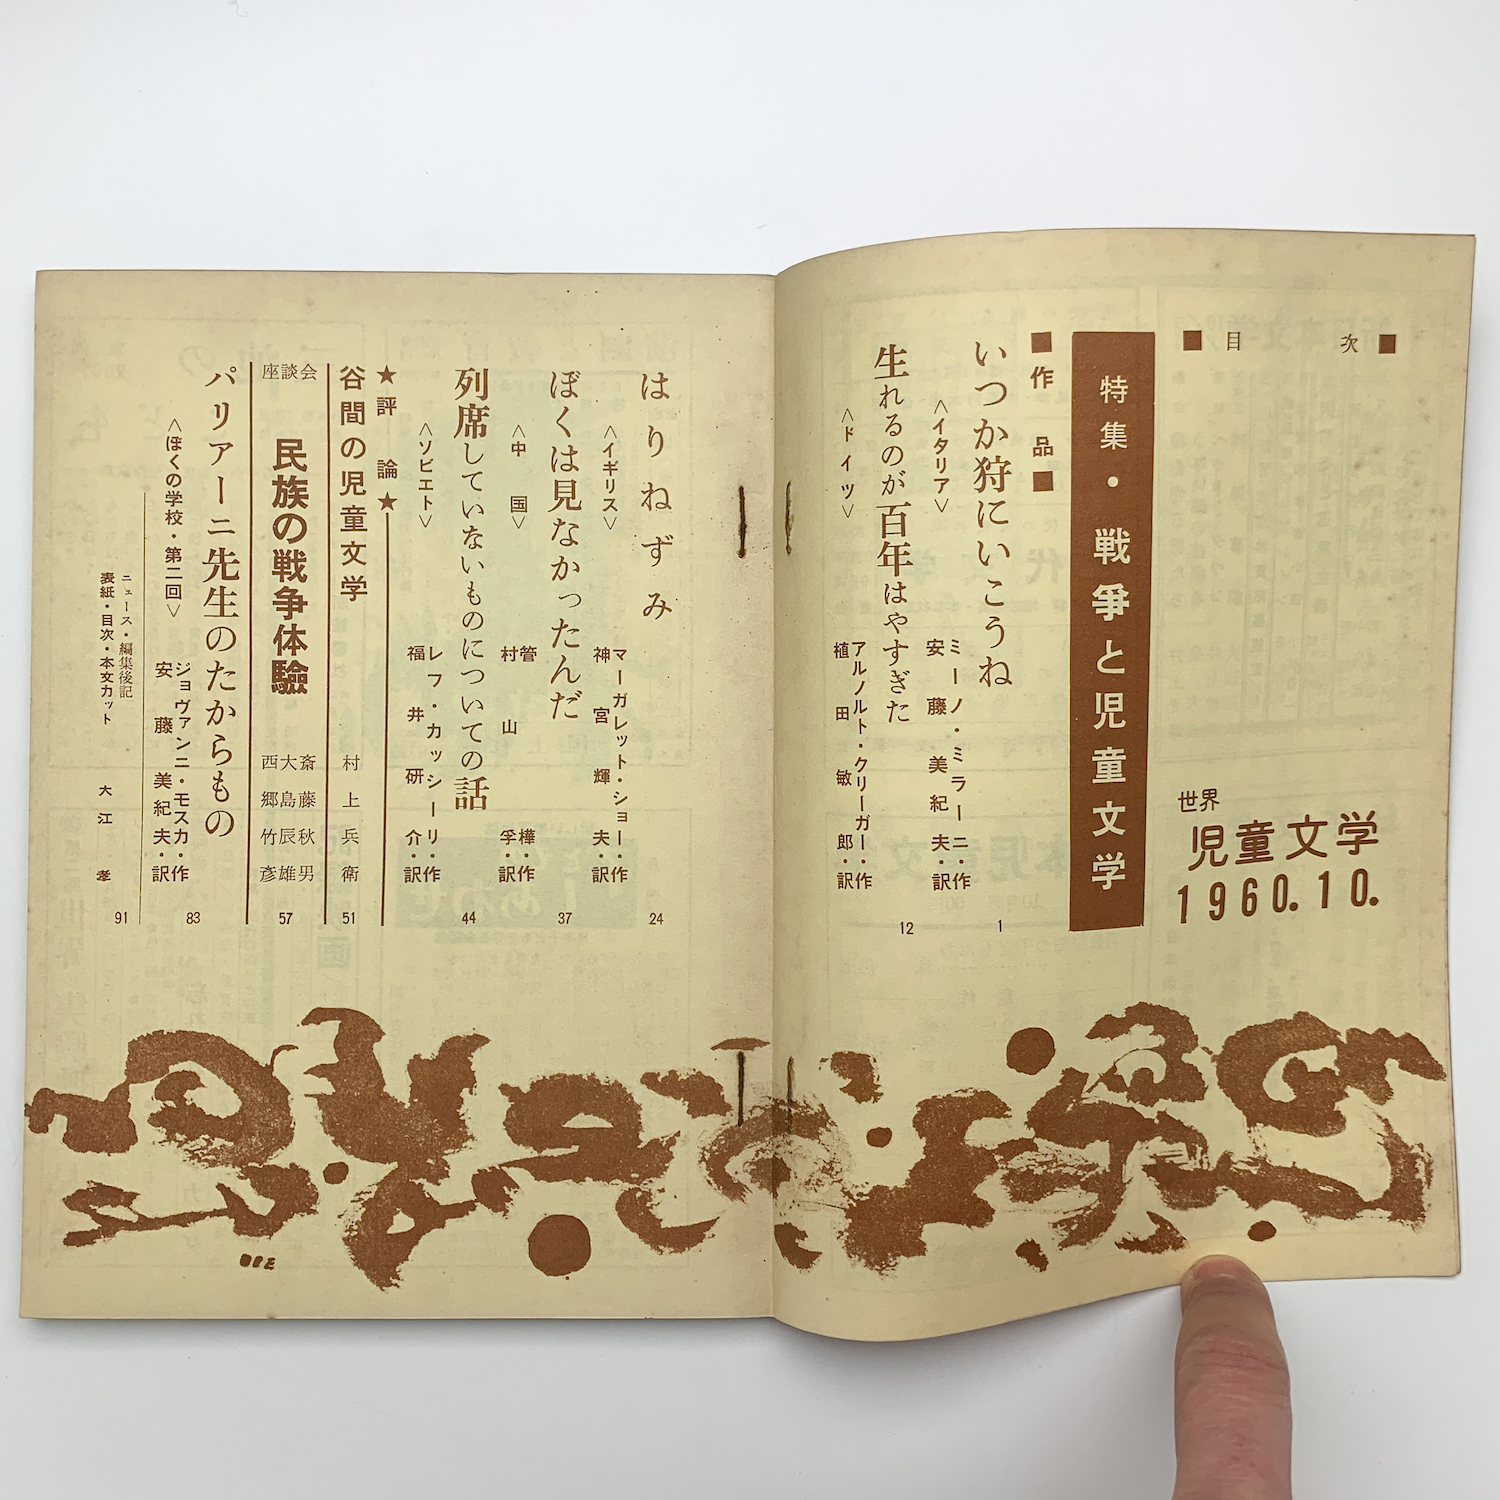 ■目次■
世界
児童文学
1960.10.
特集・戦爭と児童文学
■作品■
いつか狩にいこうね
〈イタリア〉
ミーノ・ミラーニ・作
安藤美紀夫・訳
1
生れるのが百年はやすぎた
〈ドイツ〉
アルノルト・クリーガー・作
植田敏郎・訳
12
はりねずみ
〈イギリス〉
マーガレット・ショー・作
神宮輝夫・訳
24
ぼくは見なかったんだ
〈中国〉
管樺・作
村山孚・訳
37
列席していないものについての話
〈ソビエト〉
レフ・カッシーリ・作
福井研介・訳
44
★評論★
谷間の児童文学
村上兵衛
51
座談会
民族の戦争体験
斎藤秋男
大島辰雄
西郷竹彦
57
パリアーニ先生のたからもの
〈ぼくの学校・第二回〉
ジョヴァンニ・モスカ・作
安藤美紀夫・訳
83
ニュース・編集後記
表紙・目次・本文カット
大江孝
91